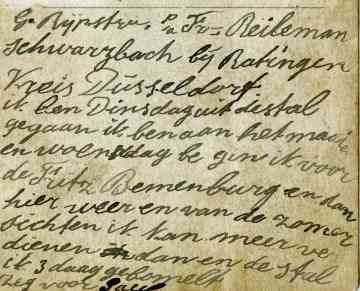 G. Rijpstra, p/a Fr= Beileman
Schwarzbach bij Ratingen
Kreis Düsseldorf.
ik ben Dinsdag uit de stal
gegaan ik ben aan het maaie
en woensdag be gin ik voor
de Fritz Bemenburg en dan
hier weer en van de zomer
sichten ik kan meer ve
dienen dan en de stal
ik 3 daag gebomelt
zeg voor